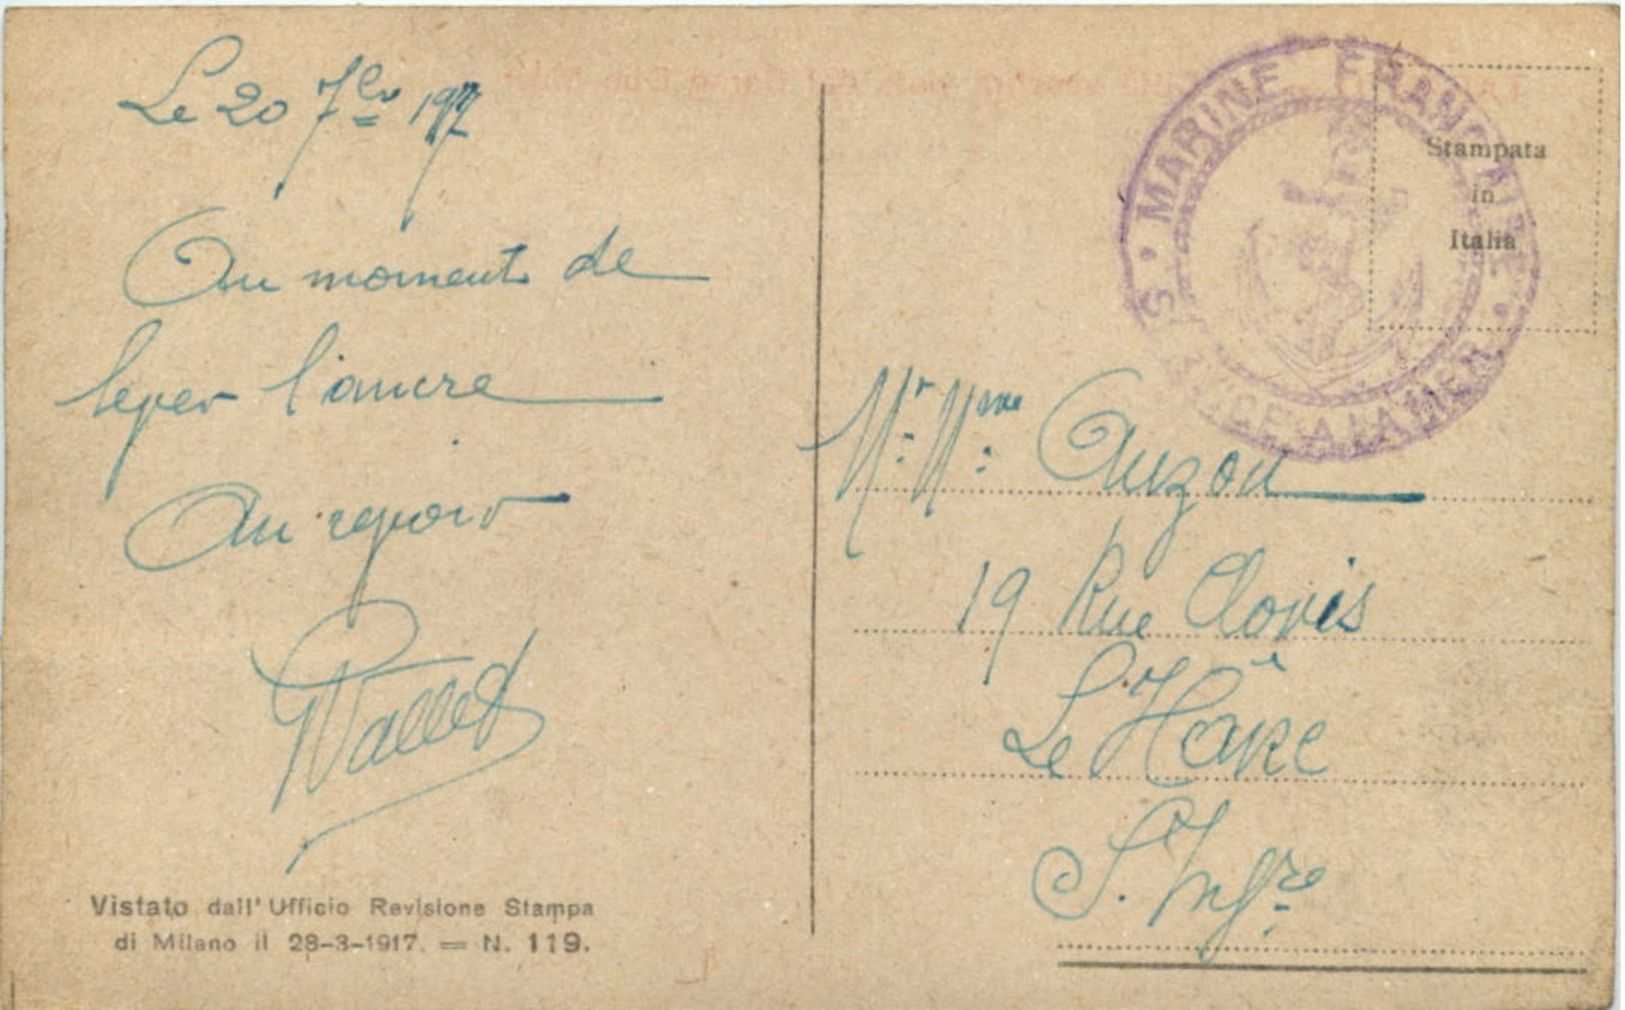 Le 20 7bre 1917
Au moment de
lever l'ancre
Au revoir
Vallet
Vistato dall'Ufficio Revisione Stampa
di Milano il 28-3-1917. = N. 119.
MARINE FRANÇAISE
SERVICE A LA MER
Stampata
in
Italia
Mr. Mme. Auzou
19 Rue Clovis
Le Havre
S. Infre.